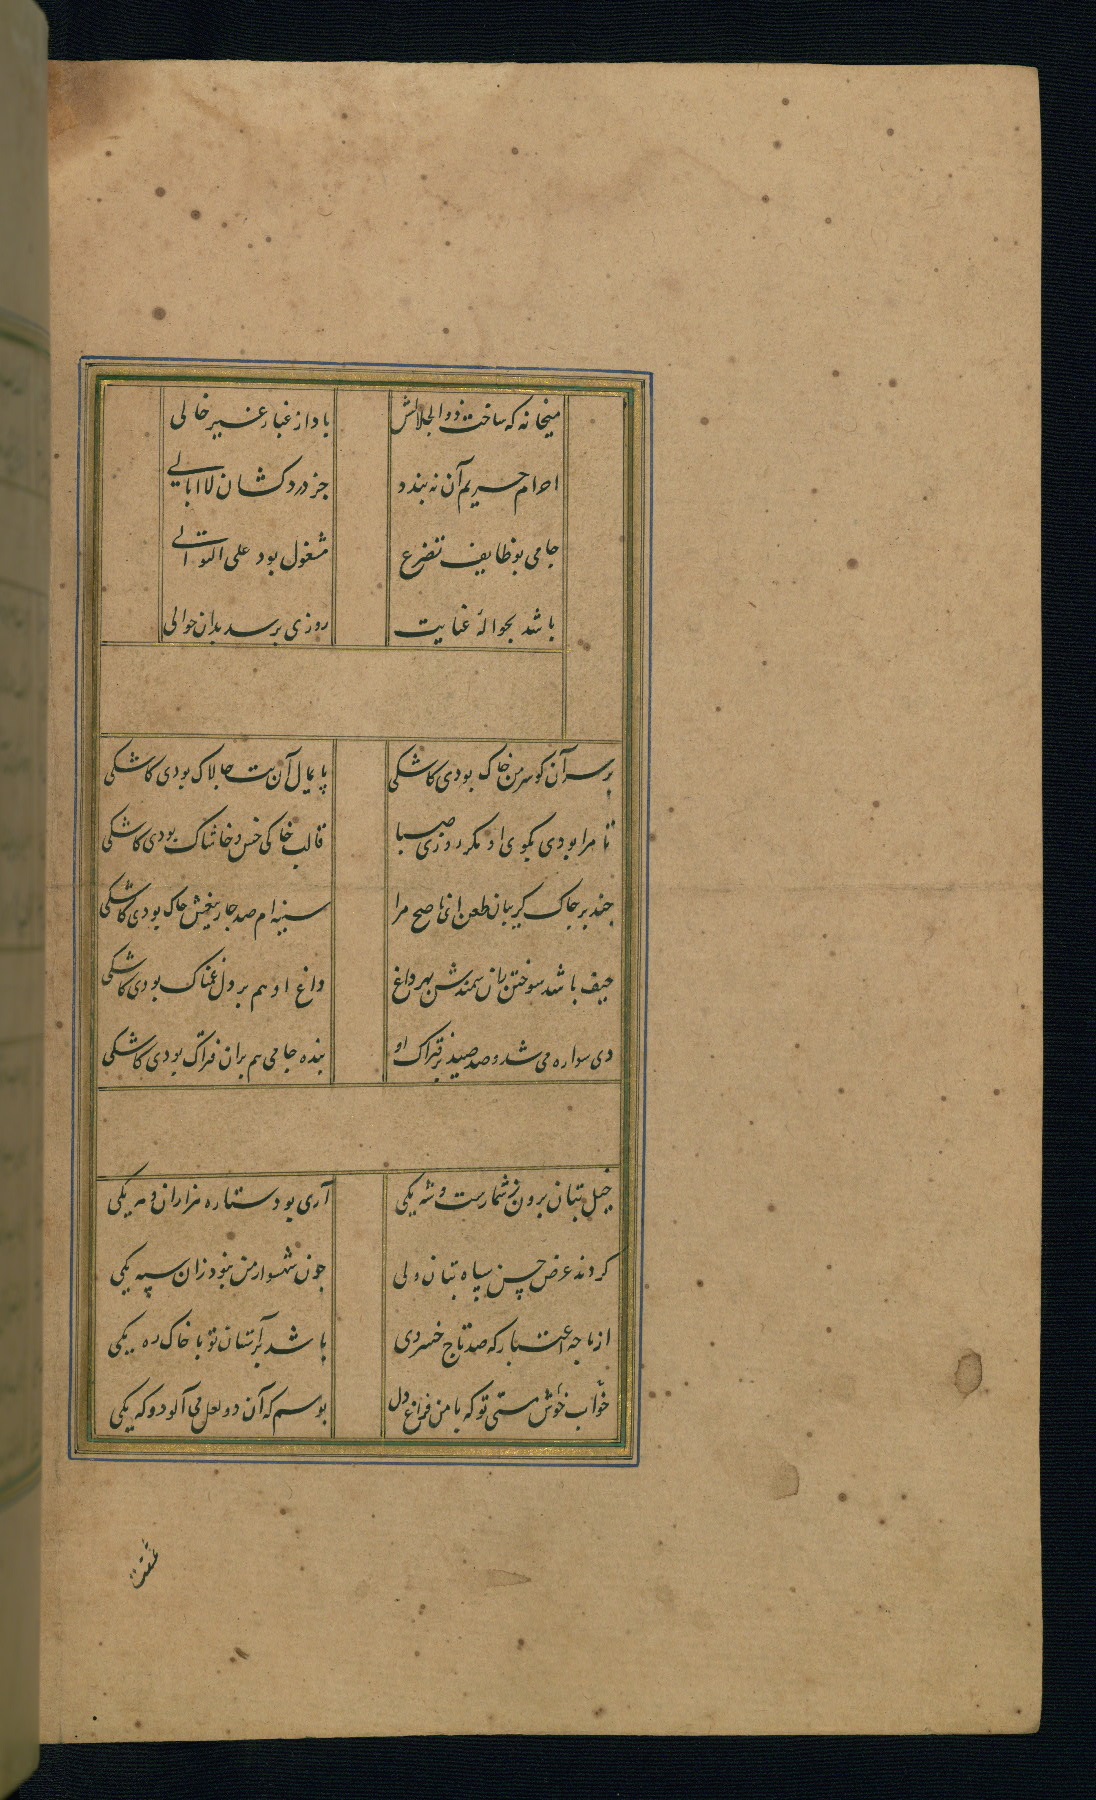 میخانه که ساخت ذو الجلالش باد از غبار غیر خالی
احرام حریم آن نه بندد جز دردکشان لا ابالی
جامی بوظایف تضرع مشغول بود علی التوالی
باشد بحوالهٔ عنایت روزی برسد بدان حوالی
بر سر آن کو سر من خاک بودی کاشکی پایمال آن بت جالاک بودی کاشکی
تا مرا بودی بکوی او مکر روزی صبا قالب خاکی خس و خاشاک بودی کاشکی
جند بر جاک کریبان طعن ای ناصح مرا سینه ام صد جا ز تیغش جاک بودی کاشکی
حیف باشد سوختن ران سمندش بهر داغ داغ او هم بر دل غمناک بودی کاشکی
دی سواره می شد و صد صید بر فتراک او بنده جامی هم بران فتراک بودی کاشکی
خیل بتان برون ز شمارست و شه یکی آری بود ستاره هزاران و مه یکی
کردند عرض حسن سپاه بتان ولی جون شهسوار من نبود زان سپه یکی
از ما جه اعتبار که صد تاج خسروی باشد بر آستان تو با خاک ره یکی
خواب خوش مستی تو که با من فراغ دل بوسم که آن دو لعل می آلود و که یکی